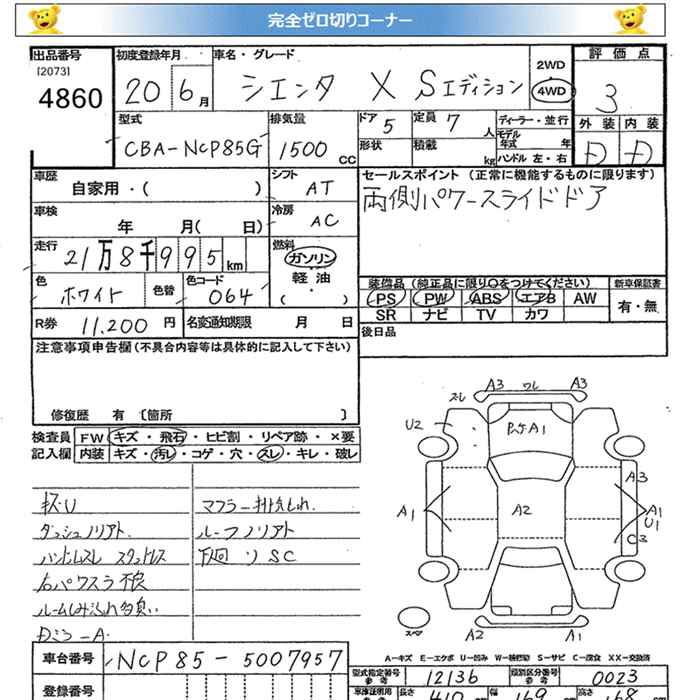 完全ゼロ切りコーナー
出品番号
[2073]
4860
初度登録年月
20 6月
車名・グレード
シエンタ X Sエディション
2WD
4WD
評価点
3
外装 内装
D D
型式
CBA-NCP85G
排気量
1500 CC
ドア 5
定員 7 人
形状
積載 kg
ディーラー・並行
モデル年式 年
ハンドル 左・右
車歴
自家用・( )
シフト
AT
セールスポイント (正常に機能するものに限ります)
両側パワースライドドア
車検
年 月( 日)
冷房
AC
走行
21万8千995km
燃料
ガソリン
軽油
・( )
色
ホワイト
色替
色コード
064
装備品 (純正品に限り○をつけてください)
PS PW ABS エアB AW
SR ナビ TV カワ
新車保証書
有・無
R券 11,200 円
名変通知期限 月 日
後日品
注意事項申告欄 (不具合内容等は具体的に記入して下さい)
修復歴 有 〔箇所 〕
検査員記入欄
FW キズ・飛石・ヒビ割・リペア跡・×要
内装 キズ・汚レ・コゲ・穴・スレ・キレ・破レ
キズU
ダッシュノリアト
ハンドルスレ スタットレス
右パワスラ不良
ルームしみ汚れ多臭い
Dミラ-A
マフラー排気もれ
ルーフノリアト
下回りSC
スレ A3 ワレ A3
U2
P.ケA1
A3
A1 A2 A1
U1
C3
スペア
A2 A1
A-キズ E-エクボ U-凹み W-補修跡 S-サビ C-腐食 XX-交換済
車台番号
NCP85-5007957
登録番号
型式指定番号 参考
12136
類別区分番号 参考
0023
車庫証明用 参考
長さ 410 cm
幅 169 cm
高さ 168 cm